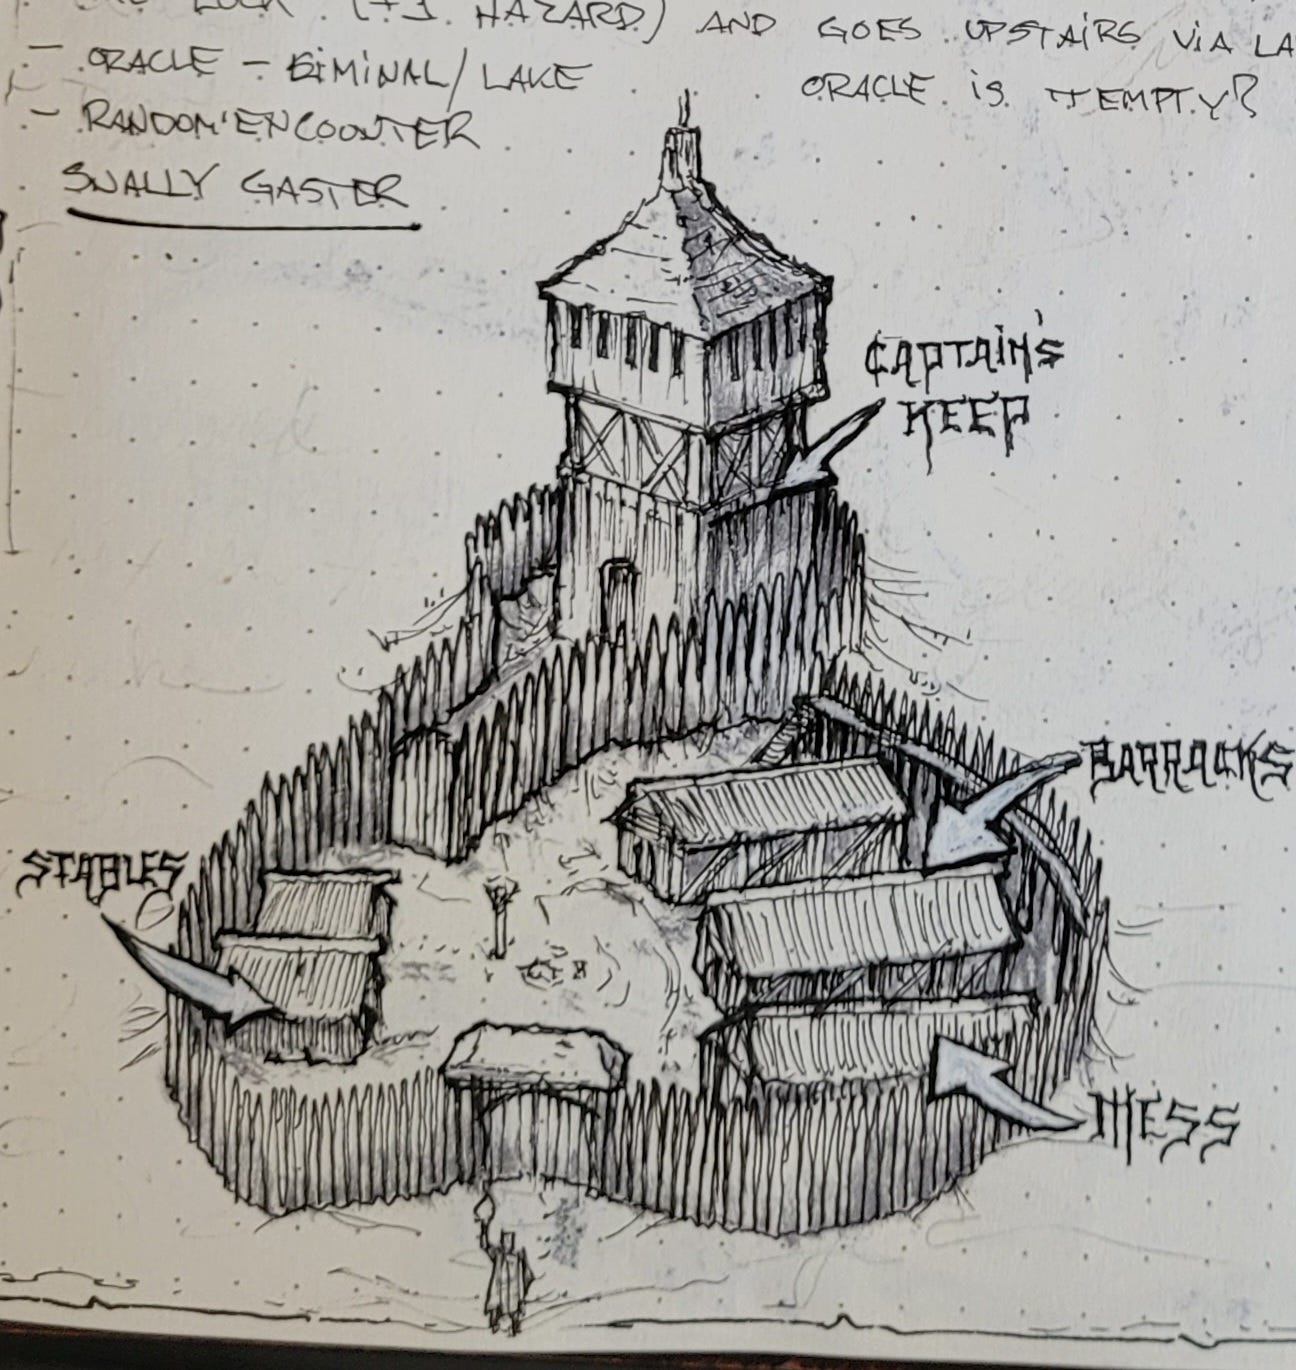 LOCK (+1 HAZARD) AND GOES UPSTAIRS VIA LA
- ORACLE - LIMINAL/LAKE
ORACLE IS IT EMPTY?
- RANDOM ENCOUNTER
SNALLY GASTER
CAPTAIN'S
KEEP
BARRACKS
STABLES
MESS